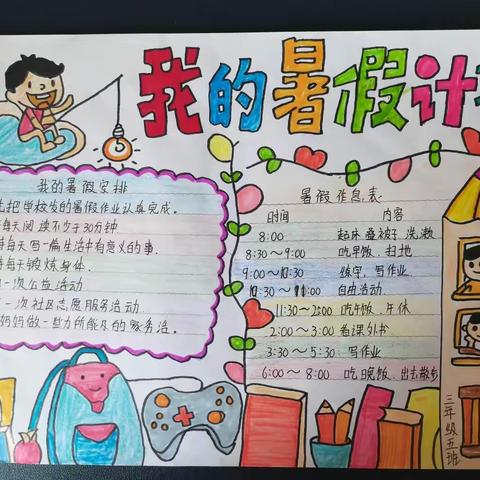 我的暑假计
我的暑假安排
把学校发的暑假作业认真完成。
每天阅读不少于30分钟
每天写一篇生活中有意义的事.
每天锻炼身体.
一次公益活动
一次社区志愿服务活动
妈妈做一些力所能及的家务活.
暑假作息表
时间 内容
8:00 起床.叠被子.洗漱
8:30～9:00 吃早饭、扫地
9:00～10:30 练字,写作业
10:30～11:00 自由活动
11:30～2:00 吃午饭.午休
2:00～3:00 看课外书
3:30～5:30 写作业
6:00～8:00 吃晚饭、出去散步
三年级五班